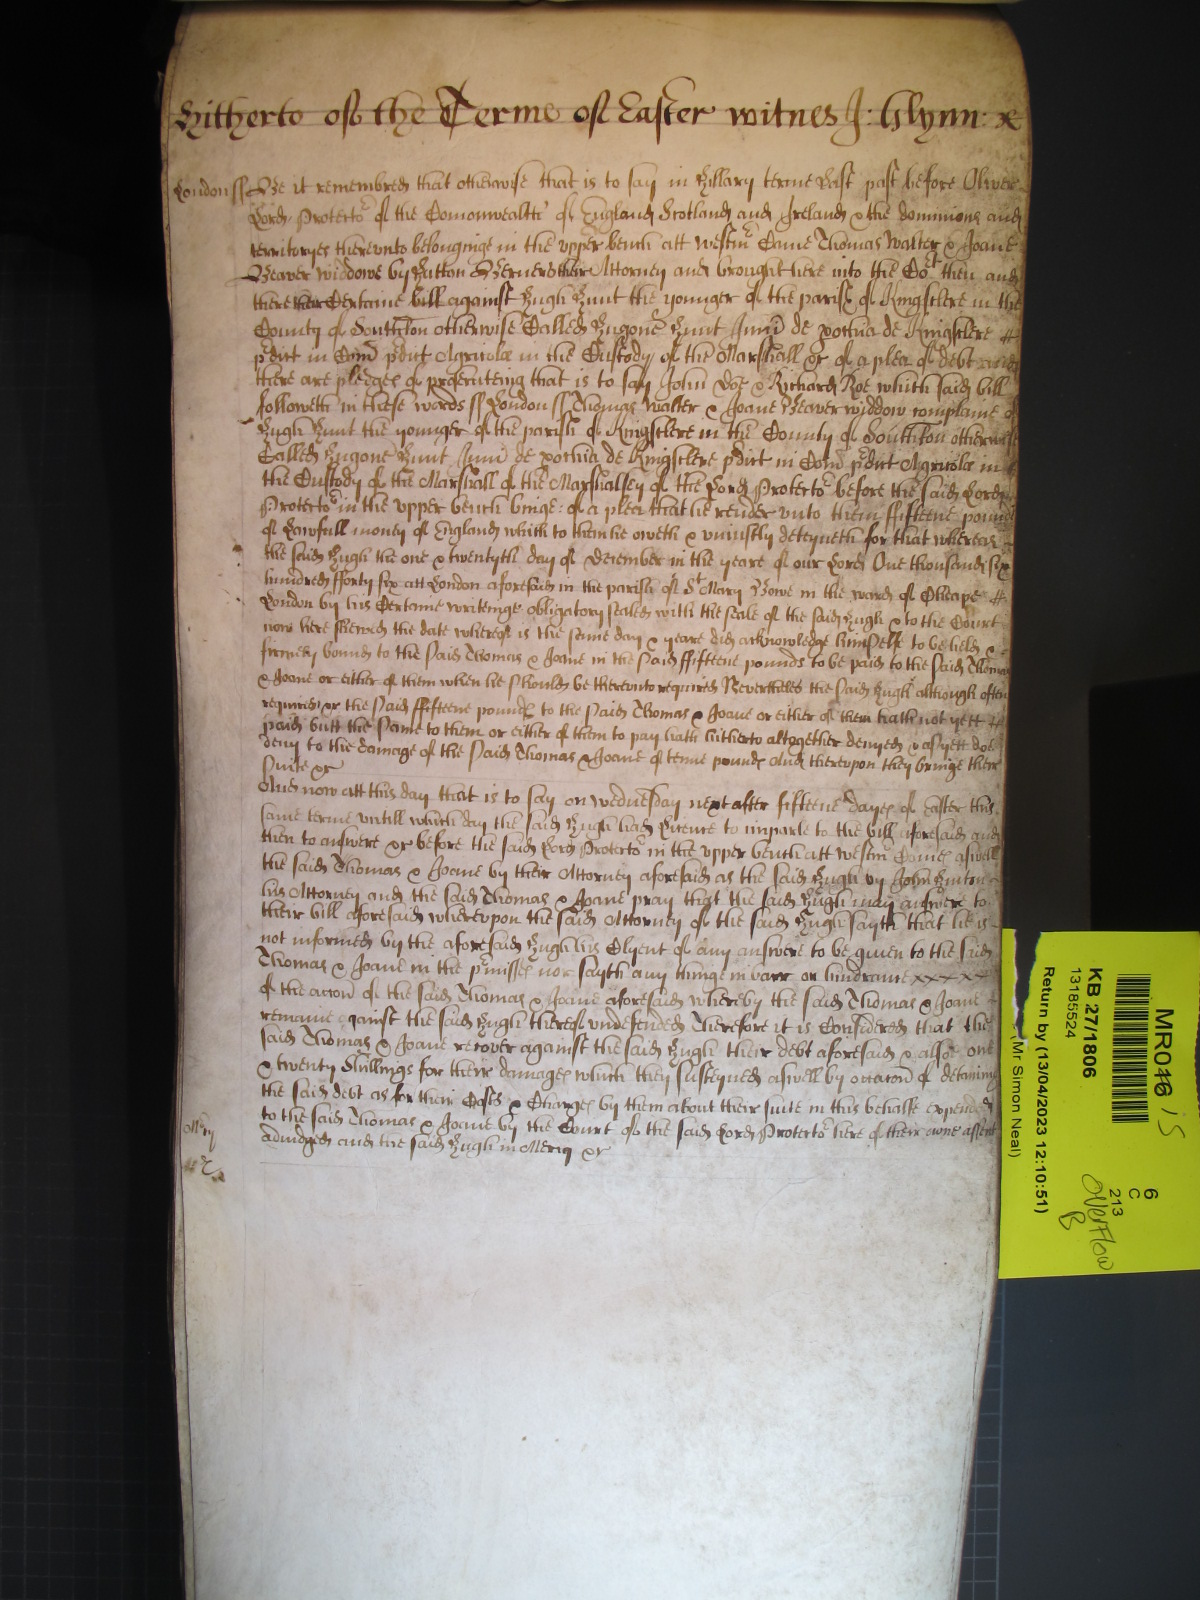 Hitherto of the Terme of Easter witnes J: Glynn: x
London ss Be it remembred that otherwise that is to say in Hillary terme Last past before Oliver
Lord Protector of the Comonwealth of England Scotland and Ireland & the dominions and
territoryes therevnto belonginge in the vpper bench att Westmr Came Thomas Walter & Joane
Beaver widdowe by Hutton Berners their Attorney and brought here into the Cot then and
there their Certaine bill against Hugh Hunt the younger of the parish of Kingsclere in the
County of Southton otherwise Called Hugone Hunt Juni de pochia de Kingsclere
pdict in Com pdict Agricola in the Custody of the Marshall &c of a plea of debt and
there are pledges of prosecuteing that is to say John Doe & Richard Roe which said bill
followeth in these words ss London ss Thomas Walter & Joane Beaver widdow complaine of
Hugh Hunt the younger of the parish of Kingsclere in the County of Southton otherwise
Called Hugone Hunt Juni de pochia de Kingsclere pdict in Com pdict Agricola in
the Custody of the Marshall of the Marshalsey of the Lord Protector before the said Lord
Protector in the vpper bench beinge: of a plea that he render vnto them ffifteene pounds
of Lawfull money of England which to them he oweth & vniustly deteyneth for that whereas
the said Hugh the one & twentyth day of December in the yeare of our Lord One thousand six
hundred fforty six att London aforesaid in the parish of St Mary Bowe in the ward of Cheape
London by his Certaine writeinge obligatory sealed with the seale of the said Hugh & to the Court
now here shewed the date whereof is the same day & yeare did acknowledge himselfe to be held &
firmely bound to the said Thomas & Joane in the said ffifteene pounds to be paid to the said Thomas
& Joane or either of them when he should be therevnto required Neverthelesse the said Hugh although often
required &c the said ffifteene pounds to the said Thomas & Joane or either of them hath not yett
paid butt the same to them or either of them to pay hath hitherto altogether denyed & as yett doe
deny to the damage of the said Thomas & Joane of tenne pounds And therevpon they bringe there
suite &c
And now att this day that is to say on Wednesday next after fifteene dayes of Easter this
same terme vntill which day the said Hugh had Licence to imparle to the bill aforesaid and
then to answere &c before the said Lord Protector in the vpper bench att Westmr Comes aswell
the said Thomas & Joane by their Attorney aforesaid as the said Hugh by John Hunton
his Attorney and the said Thomas & Joane pray that the said Hugh may answere to
their bill aforesaid wherevpon the said Attorney of the said Hugh sayth that he is
not informed by the aforesaid Hugh his Clyent of any answere to be given to the said
Thomas & Joane in the pmisses nor sayth any thinge in barr or hindrance x x x x x
of the accon of the said Thomas & Joane aforesaid whereby the said Thomas & Joane
remaine against the said Hugh thereof vndefended Therefore it is Considered that the
said Thomas & Joane recover against the said Hugh their debt aforesaid & alsoe one
& twenty shillings for their damages which they susteyned aswell by occacon of detaining
the said debt as for their Costs & Charges by them about their suite in this behalfe expended
to the said Thomas & Joane by the Court of the said Lord Protector here of their owne assent
adiudged and the said Hugh in Mercy &c
Mercy
MR046 15
KB 27/1806
13185524
Return by (13/04/2023 12:10:51)
(Mr Simon Neal)
6
C
213
Overflow
B